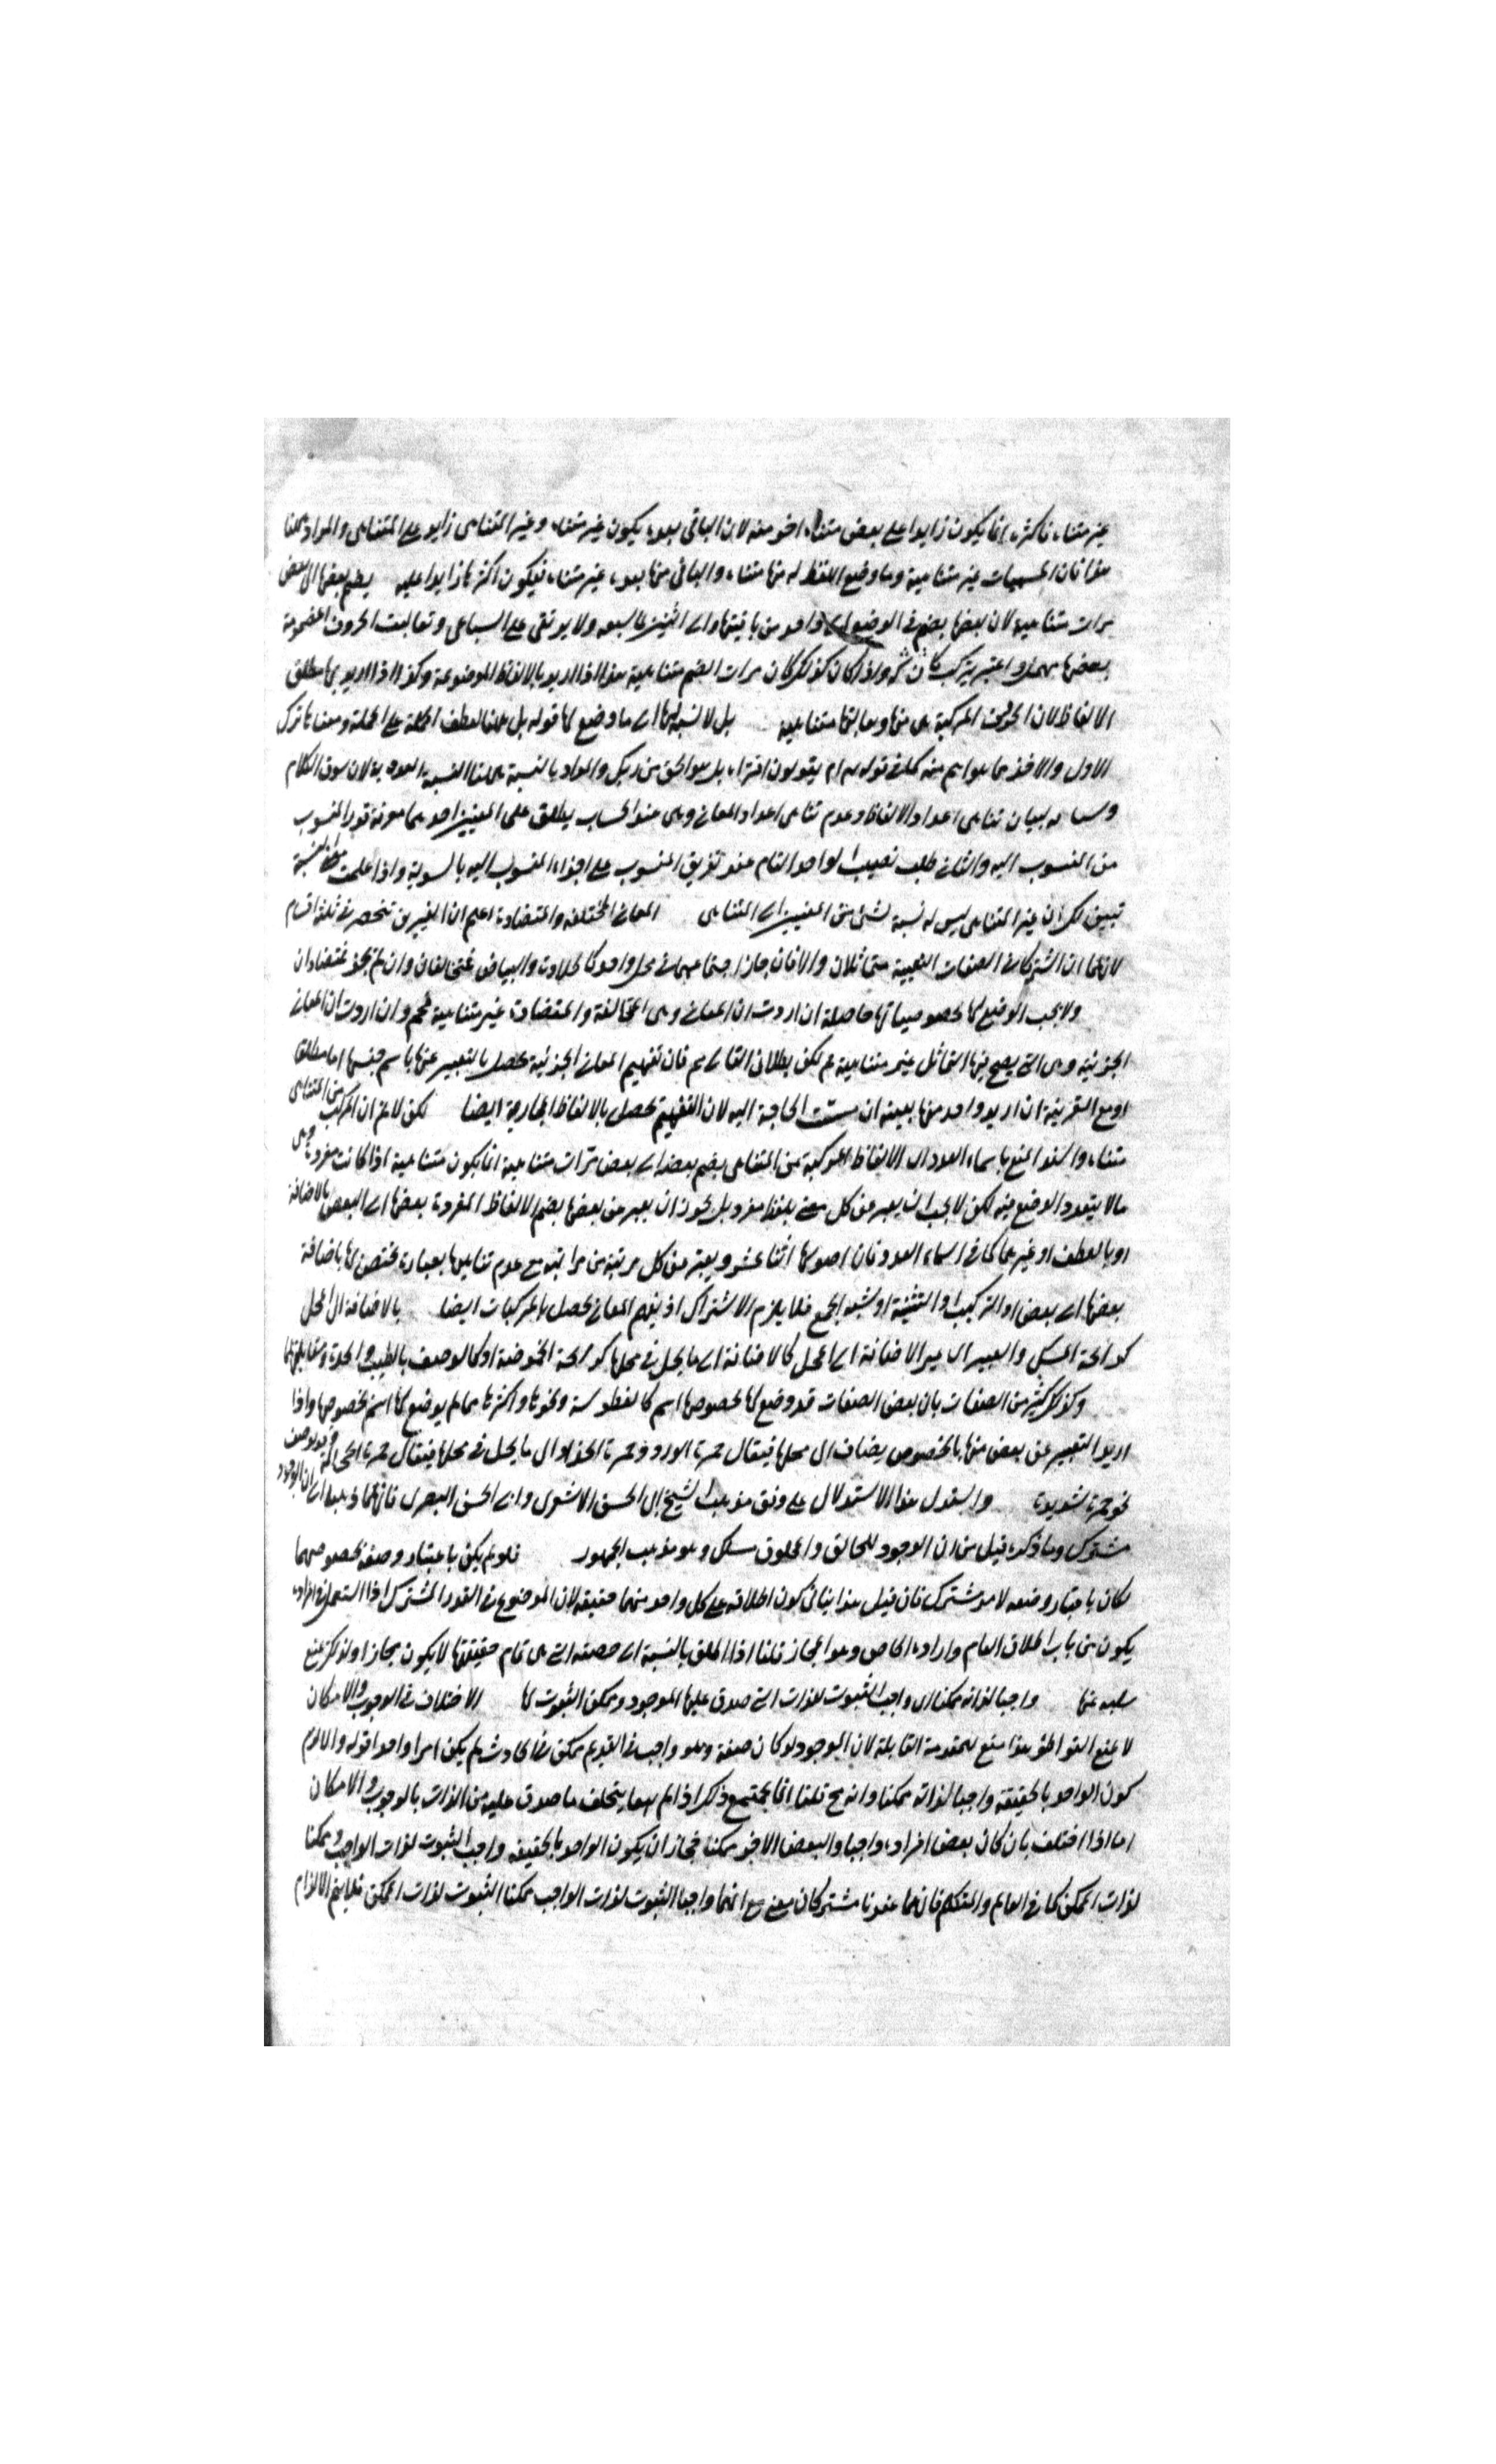 غير متناه فاكثره انما يكون زايدا على بعض متناه اخر منه لان الباقى بعده يكون غير متناه وغير المتناهى زايد على المتناهى والمراد ههنا
هذا فان المسميات غير متناهية وما وضع اللفظ له منها متناه والباقى منها بعده غير متناه فيكون اكثرها زايدا عليه يضم بعضها الى بعض
مرات متناهية لان بعضها يضم فى الوضع الى واحد من باقيتها والى اثنين الى السبعة ولا يرتقى على السباعى وتعاليت الحروف المضمومة
بعضها مهملة واذا كان كذلك كان مرات الضم متناهية هذا اذا اريد بالالفاظ الموضوعة وكذا اذا اريد بها مطلق
الالفاظ لان الحروف المركبة هى منها متناهية بل لا نسبة لها الى ما وضع لها قوله بل ههنا لعطف الجملة على الجملة ومعناها ترك
الاول والاخذ بما هو اهم منه كما فى قوله تع ام يقولون افتراه بل هو الحق من ربك والمراد بالنسبة ههنا النسبة العددية لان سوق الكلام
لبيان تناهى اعداد الالفاظ وعدم تناهى اعداد المعانى وهى عند الحساب يطلق على المعنيين احدهما معرفة قدر المنسوب
من المنسوب اليه والثانى طلب نصيب الواحد التام عند تفريق المنسوب على اجزاء المنسوب اليه بالسوية واذا علمت معنى النسبة
تبين لك ان غير المتناهى ليس له نسبة بشئ من المعنيين الى المتناهى المعانى المختلفة والمتضادة اعلم ان الغيرين تنحصر فى ثلثة اقسام
لانهما ان اشتركا فى الصفات النفسية متماثلان والا فان جاز اجتماعهما فى محل واحد كالحلاوة والبياض فمختلفان وان لم يجز فمتضادان
ولا يجب الوضع لها بخصوصياتها حاصله ان اردت ان المعانى وهى المخالفة والمتضادة غير متناهية فمم وان اردت ان المعانى
الجزئية وهى التى يصح فيها التماثل غير متناهية فم لكن بطلان التالى مم فان تفهيم المعانى الجزئية يحصل بالتعبير عنها باسم جنسها اما مطلقا
او مع القرينة ان اريد واحد منها بعينه ان مست الحاجة اليه لان التفهيم يحصل بالالفاظ المجازية ايضا لكن لا نم ان المركب من المتناهى
متناه والسند المنع باسماء العدد اى الالفاظ المركبة من المتناهى بضم بعض الى بعض مرات متناهية انما يكون متناهية اذا كانت مفردة وهى
ما لا يتعدد الوضع فيه لكن لا يجب ان يعبر عن كل معنى بلفظ مفرد بل يجوز ان يعبر عن بعضها بضم الالفاظ المفردة بعضها الى البعض بالاضافة
او بالعطف او غيرهما كما فى اسماء العدد فان اصولها اثنا عشر ويعبر عن كل مرتبة من مراتبه مع عدم تناهيها بعبارة مختص لها باضافة
بعضها الى بعض او التركيب او التثنية او شبه الجمع فلا يلزم الاشتراك اذ تفهيم المعانى يحصل بالمركبات ايضا بالاضافة الى المحل
كرائحة المسك والعبير اى غير الاضافة الى المحل كالاضافة الى ما يحل فى محلها كرائحة الحموضة او كالوصف بالطيب والحدة ومقابلتهما
وكذلك كثير من الصفات بان بعض الصفات قد وضع لها بخصوصها اسم كالفطوسة ونحوها واكثرها مما لم يوضع لها اسم بخصوصها واذا
اريد التعبير عن بعض منها بالخصوص يضاف الى محلها فيقال حمرة الورد وحمرة الخد او الى ما يحل فى محلها فيقال حمرة الخجالة وقد يوصف
نحو حمرة شديدة واستدل هذا الاستدلال على وفق مذهب الشيخ ابى الحسن الاشعرى وابى الحسن البصرى فانهما ذهبا الى ان الوجود
مشترك وما ذكره قيل من ان الوجود للخالق والمخلوق مشكل وهو مذهب الجمهور فلو لم يكن باعتبار وضعه بخصوصهما
لكان باعتبار وضعه لامر مشترك فان قيل هذا ينافى كون اطلاقه على كل واحد منهما حقيقة لان الموضوع فى القدر المشترك اذا استعمل فى افراده
يكون من باب اطلاق العام وارادة الخاص وهو المجاز قلنا اذا اطلق بالنسبة الى حصته التى هى تمام حقيقتها لا يكون مجازا ولذلك يمنع
سلبه عنها واجبا لذاته ممكنا اى واجب الثبوت للذات التى صدق عليها الموجود وممكن الثبوت لها الاختلاف فى الوجوب والامكان
لا يمنع التواطؤ هذا منع للمقدمة القائلة لان الموجود لو كان صفة وهو واجب فى القديم ممكن فى الحادث لم يكن امرا واحدا قوله والا لزم
كون الواحد بالحقيقة واجبا لذاته ممكنا وانه مح قلنا انما يجتمع ذلك اذا لم يختلف ما صدق عليه من الذات بالوجوب والامكان
اما اذا اختلف بان كان بعض افراده واجبا والبعض الاخر ممكنا فجاز ان يكون الواحد بالحقيقة واجب الثبوت لذات الواجب وممكنا
لذات الممكن كما فى العالم والمتكلم فانهما عندنا مشتركان معنى مع انهما واجبا الثبوت لذات الواجب ممكنا الثبوت لذات الممكن فلا يتم الالزام